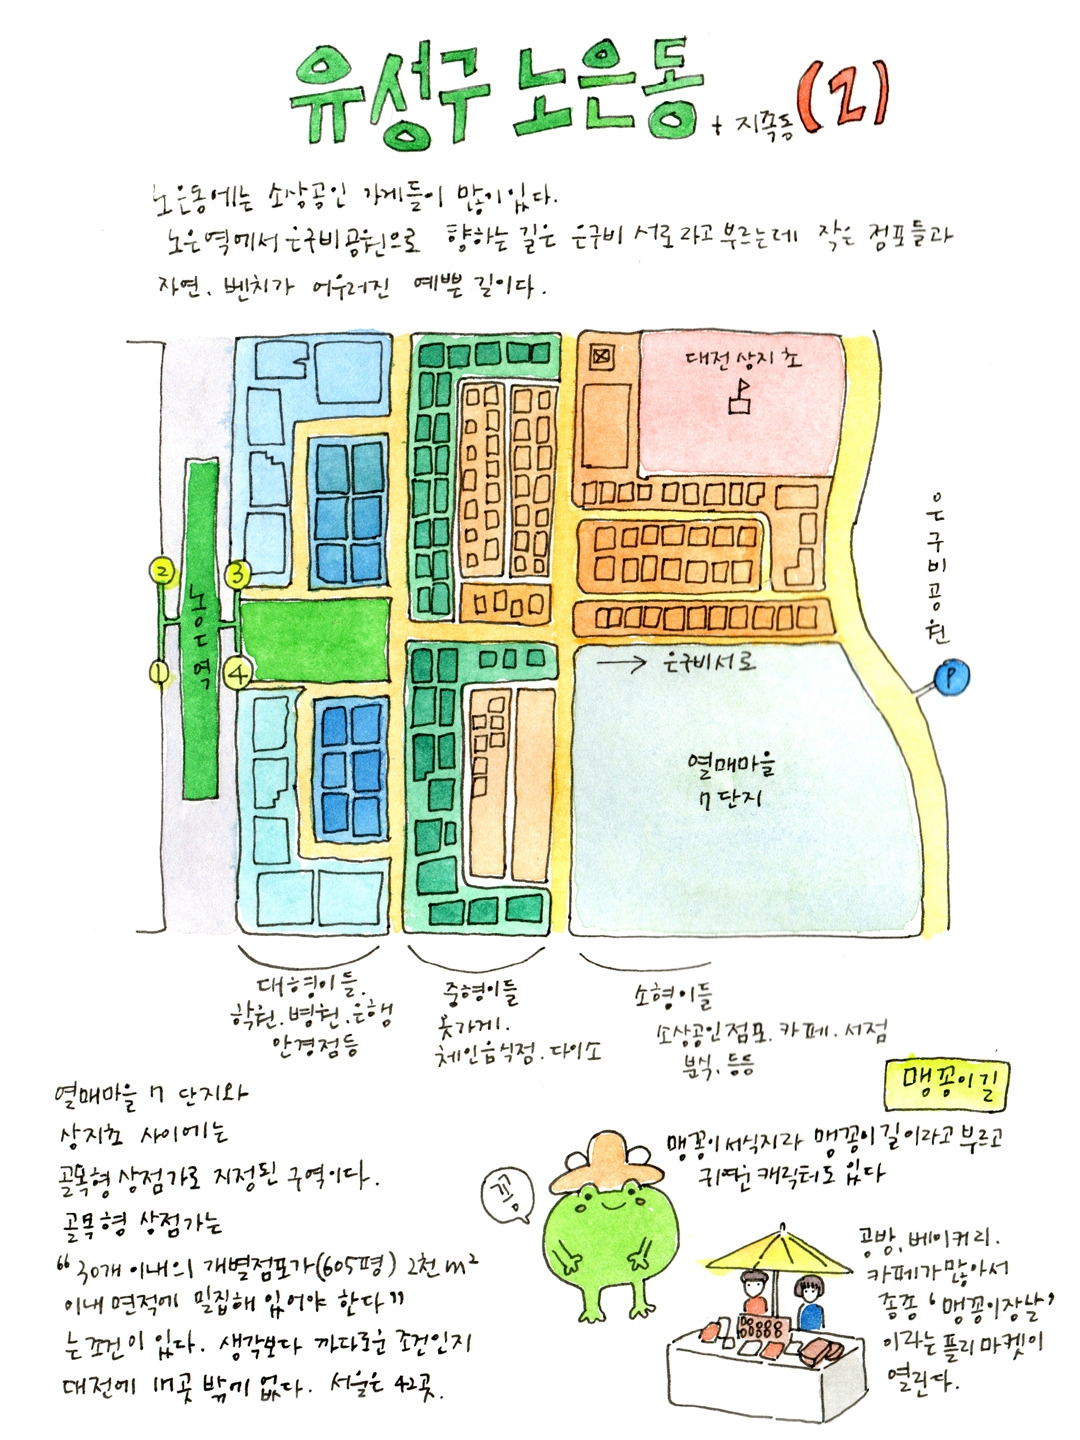 유성구 노은동 + 지족동 (2)
노은동에는 소상공인 가게들이 많이있다.
노은역에서 은구비공원으로 향하는 길은 은구비 서로라고 부르는데 작은 점포들과
자연, 벤치가 어우러진 예쁜 길이다.
대전상지초
은구비공원
2
3
노은역
1
4
→ 은구비서로
P
열매마을
7단지
대형이들.
학원. 병원. 은행
안경점등
중형이들
옷가게.
체인음식점. 다이소
소형이들
소상공인점포. 카페. 서점
분식. 등등
열매마을 7 단지와
상지초 사이에는
골목형상점가로 지정된 구역이다.
골목형 상점가는
"30개 이내의 개별점포가(605평) 2천m²
이내 면적에 밀집해 있어야 한다"
는조건이 있다. 생각보다 까다로운 조건인지
대전에 1개곳 밖에 없다. 서울은 42곳.
맹꽁이길
맹꽁이서식지라 맹꽁이길이라고 부르고
귀여운 캐릭터도 있다
꽁
공방, 베이커리.
카페가많아서
종종 '맹꽁이장날'
이라는플리마켓이
열린다.